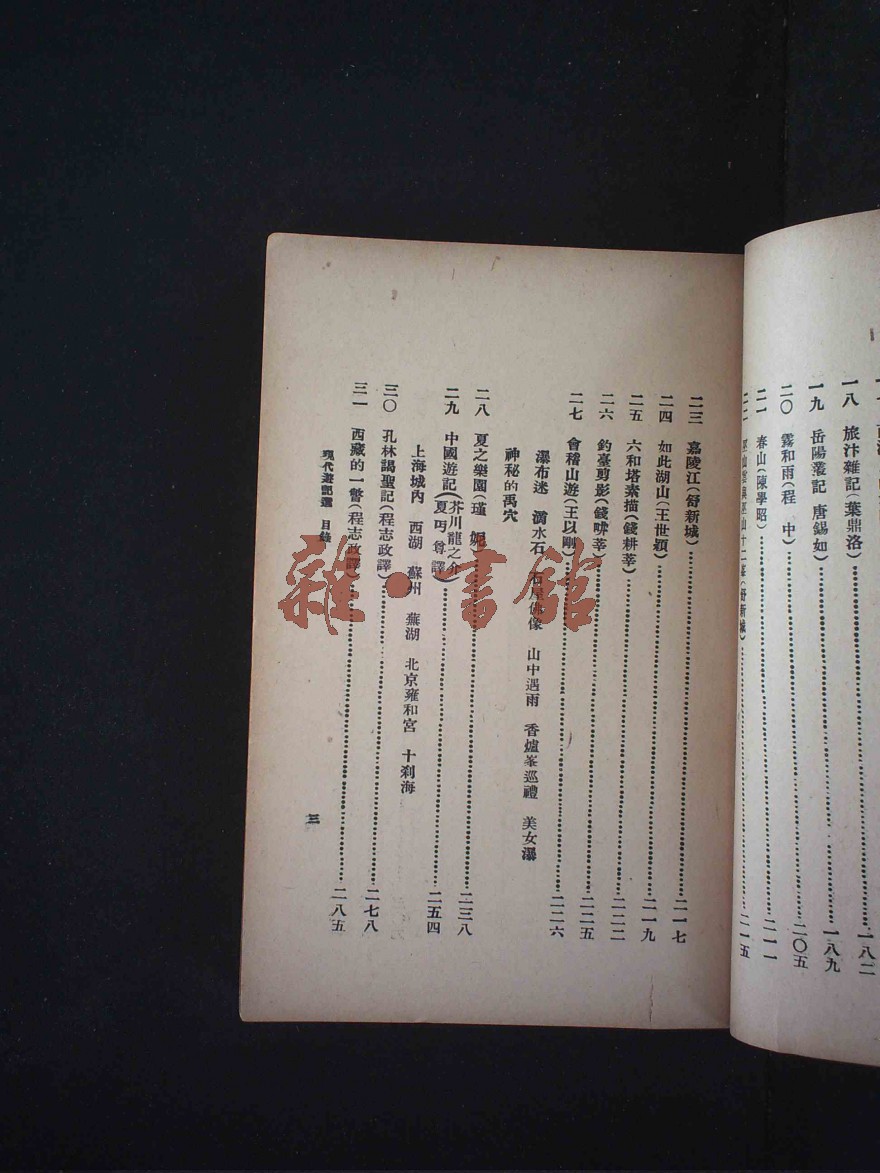 一八 旅汴雜記(葉鼎洛)……一八二
一九 岳陽叢記 唐錫如)……一八九
二〇 霧和雨(程 中)……二〇五
二一 春山(陳學昭)……二一一
二二 巫山十二峯(舒新城)……二一五
二三 嘉陵江(舒新城)……二一七
二四 如此湖山(王世穎)……二一九
二五 六和塔素描(錢耕莘)……二二二
二六 釣臺剪影(錢畊莘)……二二五
二七 會稽山遊(王以剛)……二二六
瀑布迷 滴水石 石屋佛像 山中遇雨 香爐峯巡禮 美女瀑
神秘的禹穴
二八 夏之樂園(瑾 妮)……二三八
二九 中國遊記(芥川龍之介 夏丏尊譯)……二五四
上海城內 西湖 蘇州 蕪湖 北京雍和宮 十剎海
三〇 孔林謁聖記(程志政譯)……二七八
三一 西藏的一瞥(程志政譯)……二八五
現代遊記選 目錄
三
雜·書館